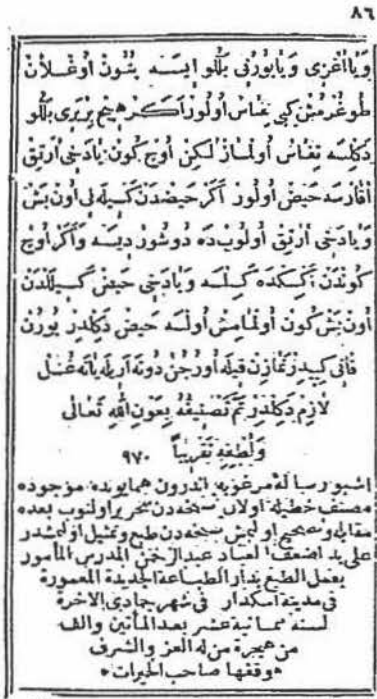 ٨٦
وَيَا اَغْزِى وَيَا بُورْنِى بَلْلُو اِيسَه بُتُونْ اُوغْلَانْ
طُوغُرْمِشْ كِبِى نِفَاسْ اُولُورْ اَكَرْ هِيچْ بِرْيَرِى بَلْلُو
دَكِلْسَه نِفَاسْ اُولْمَازْ لٰكِنْ اُوچْ كُونْ يَادَخِى اَرْتِقْ
اَقَارْسَه حَيْضْ اُولُورْ اَكَرْ حَيْضْدَنْ كَسِيلَه لِى اُونْ بَشْ
وَيَادَخِى اَرْتِقْ اُولُوبْ دَه دُوشُورْ دِيسَه وَاَكَرْ اُوچْ
كُونْدَنْ اَكْسِكْدَه كَسِلْسَه وَيَادَخِى حَيْضْ كَسِيلَلْدَنْ
اُونْ بَشْ كُونْ اُولْمَامِشْ اُولْسَه حَيْضْ دَكِلْدِرْ بُورُنْ
قَانِى كِبِيدِرْ نَمَازِنْ قِيلَه اُورُجُنْ دُوتَه اَرِيلَه يَاتَه غُسْلْ
لَازِمْ دَكِلْدِرْ تَمَّ تَصْنِيفُهُ بِعَوْنِ اللّٰهِ تَعَالٰى
وَلُطْفِهِ تَقْرِيبًا ٩٧٠
اشبو رسالۀ مرغوبه اندرون همايونده موجوده
مصنف خطيله اولان نسخه دن تحرير اولنوب بعده
مقابله وتصحيح اولنمش نسخه دن طبع وتمثيل اولنمشدر
على يد اضعف العباد عبد الرحمن المدرس المأمور
بعمل الطبع بدار الطباعة الجديدة المعمورة
فى مدينة اسكدار فى شهر جمادى الاخرة
لسنه ثمانية عشر بعد المأتين والف
من هجرة من له العز والشرف
وقفها صاحب الخيرات